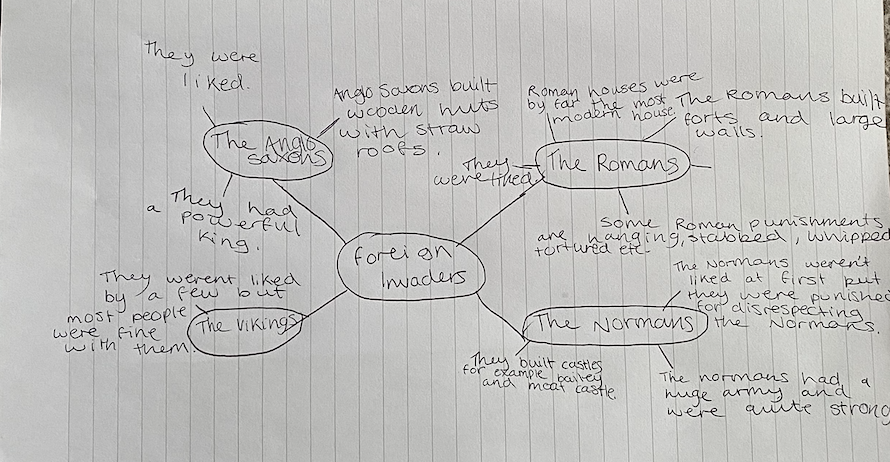 They were
liked.
The Anglo
saxons
Anglo Saxons built
wooden huts
with straw
roofs.
a They had
powerful
king.
Roman houses were
by far the most
modern house.
The Romans built
forts and large
walls.
The Romans
They
were liked.
Some Roman punishments
are hanging, stabbed, whipped
tortured etc.
foreign
Invaders
They werent liked
by a few but
most people
were fine
with them.
The Vikings
The Normans
The Normans weren't
liked at first but
they were punished
for disrespecting
the Normans.
They built castles
for example bailey
and moat castle.
The normans had a
huge army and
were quite strong